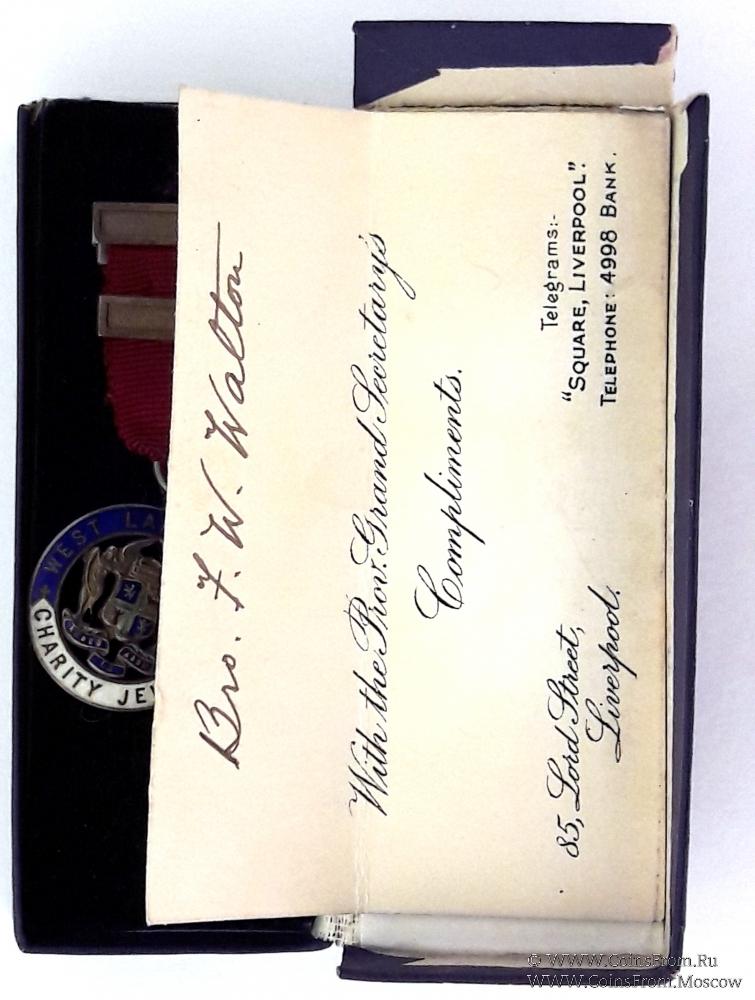 Bro. F. W. Walton
With the Prov. Grand Secretary's
Compliments.
85, Lord Street,
Liverpool.
Telegrams:-
"SQUARE, LIVERPOOL".
TELEPHONE: 4998 BANK.
WEST LA
CHARITY JEW
© WWW.CoinsFrom.Ru
WWW.CoinsFrom.Moscow